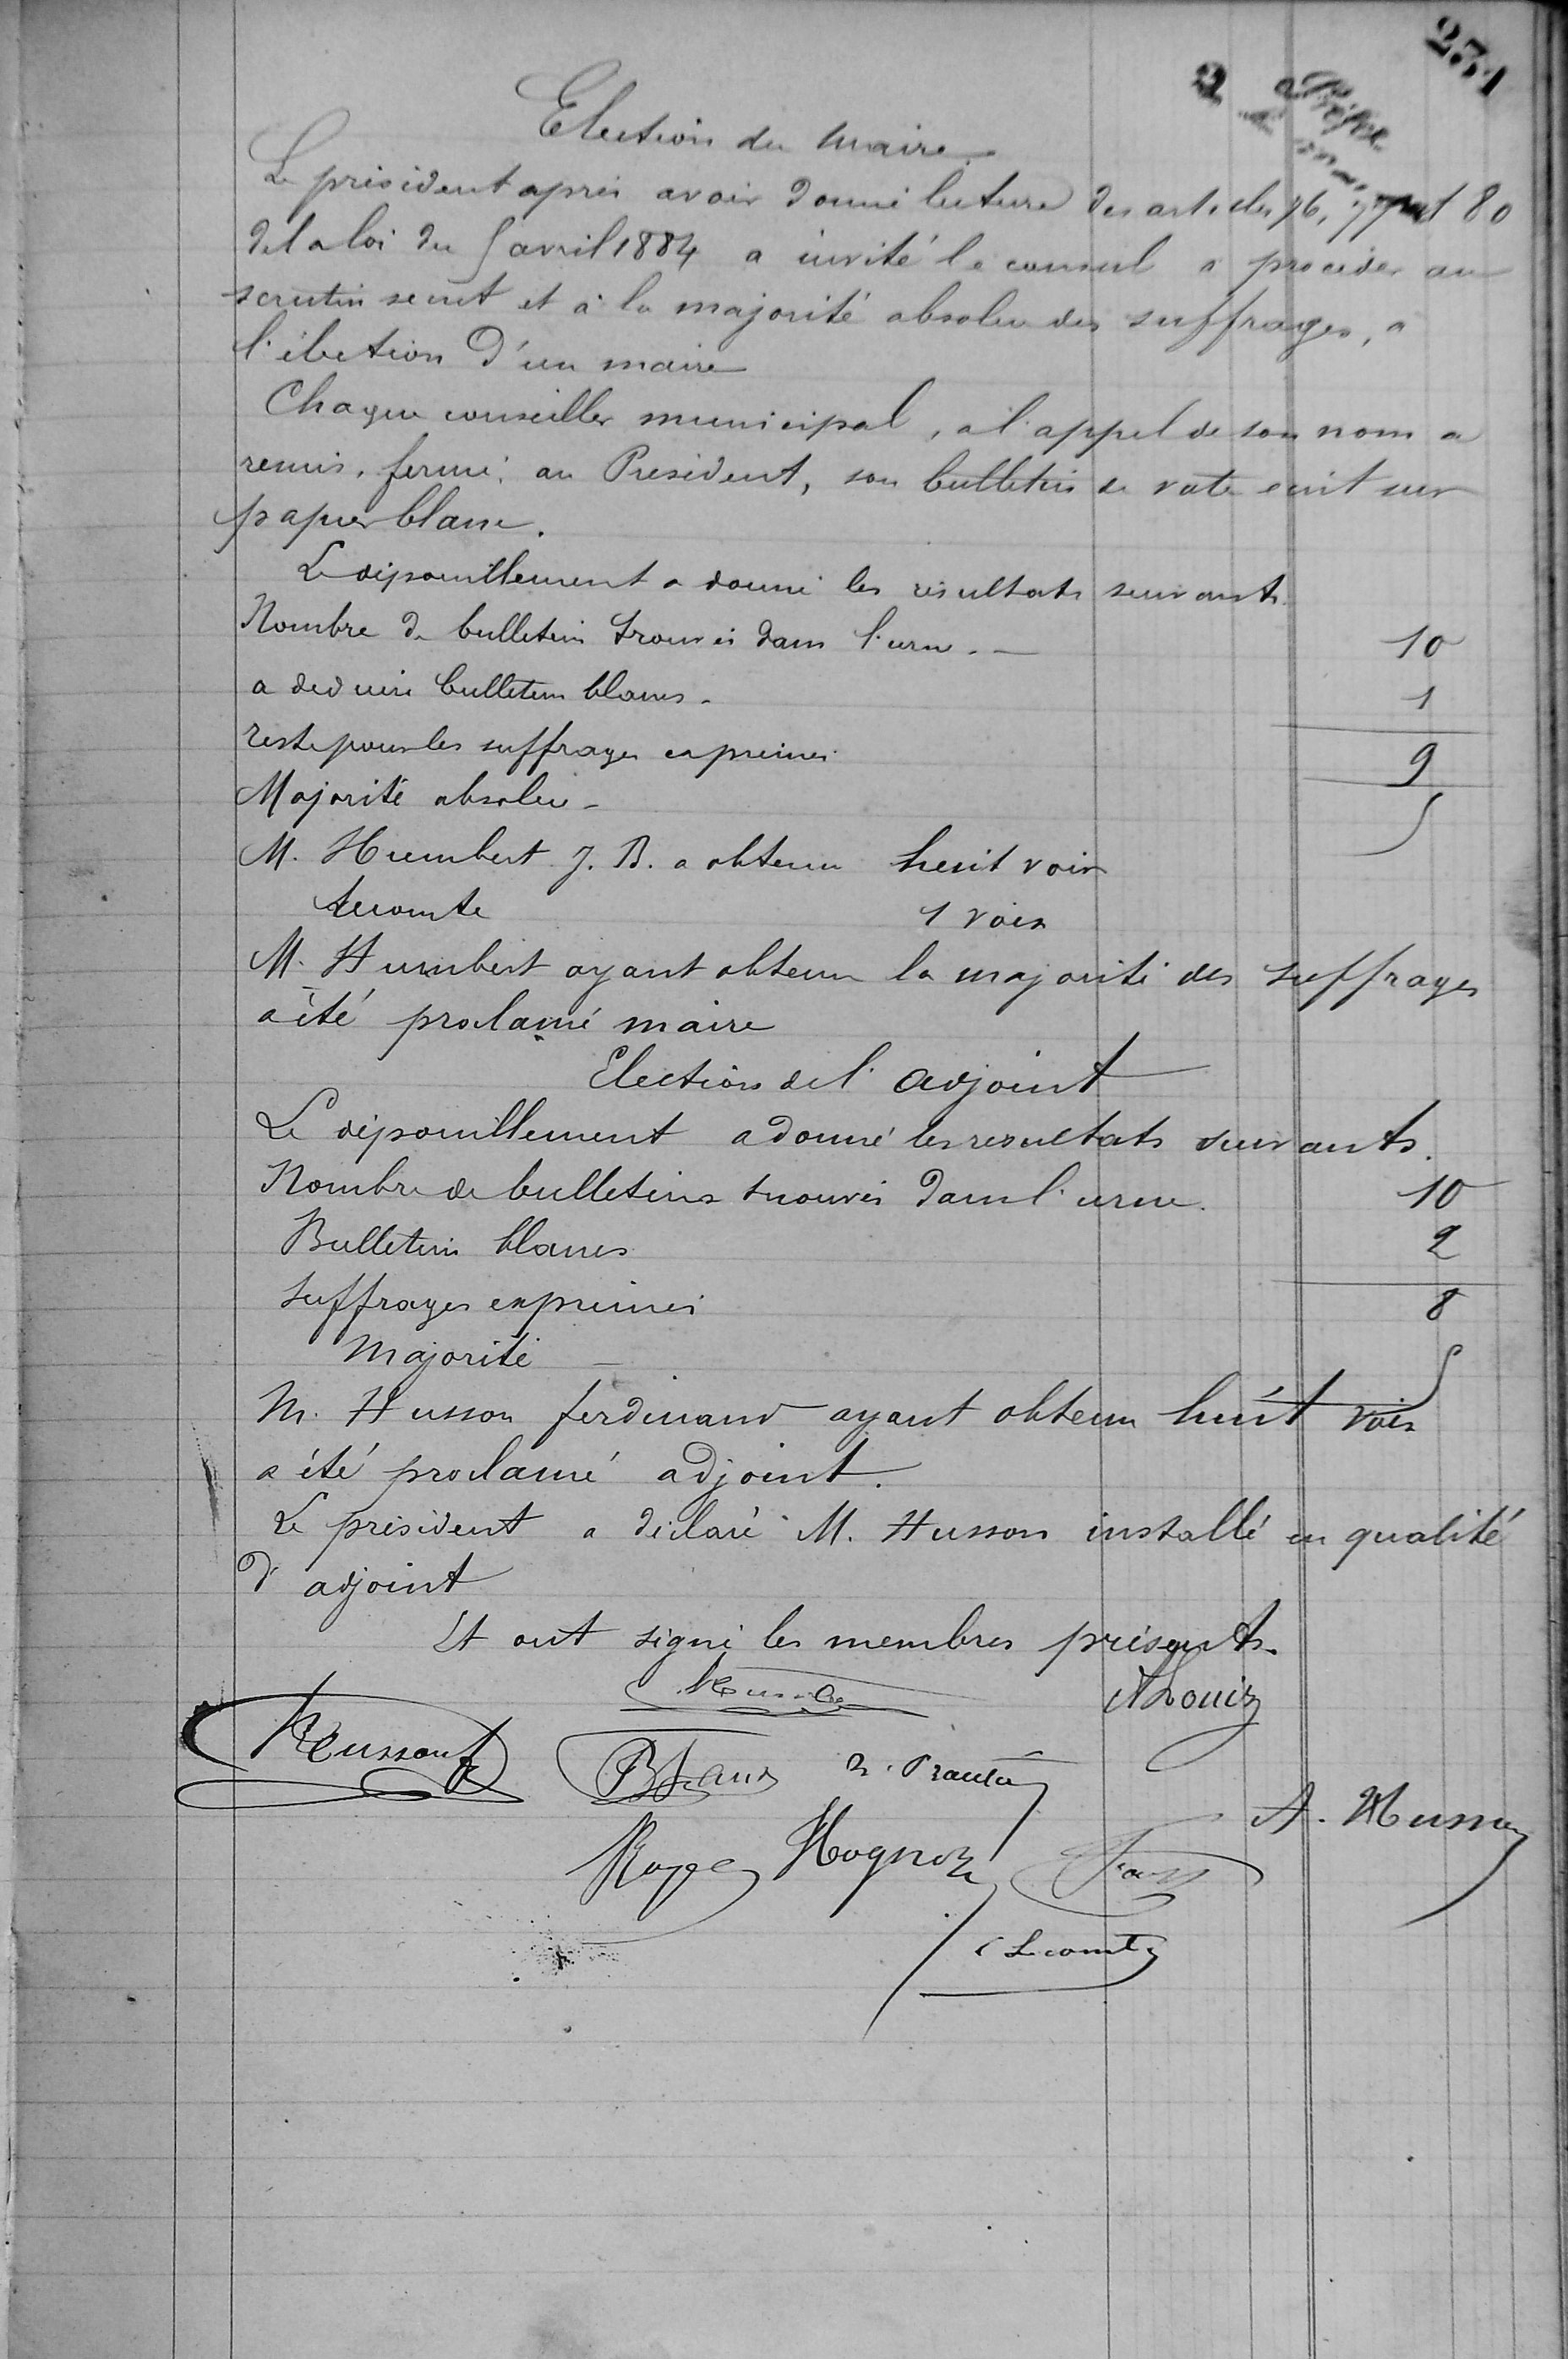 231
Election du maire
Le président après avoir donné lecture des articles 76, 77 et 80
de la loi du 5 avril 1884 a invité le conseil a proceder au
scrutin secret et à la majorité absolue des suffrages, a
l'élection d'un maire
Chaque conseiller municipal, a l'appel de son nom a
remis, fermé, au President, son bulletin de vote ecrit sur
papier blanc.
Le dépouillement a donné les résultats suivants
Nombre de bulletin trouvés dans l'urne. — 10
a deduire bulletin blancs. 1
reste pour les suffrages exprimés 9
Majorité absolue - 5
M. Humbert J. B. a obtenu huit voix
Lecomte 1 voix
M. Humbert ayant obtenu la majorité des suffrages
a été proclamé maire
Election de l'adjoint
Le dépouillement a donné les resultats suivants.
Nombre de bulletins trouvés dans l'urne. 10
Bulletin blancs 2
Suffrages exprimés 8
Majorité — 5
M. Husson ferdinand ayant obtenu huit voix
a été proclamé adjoint.
Le président a déclaré M. Husson installé en qualité
d'adjoint
Et ont signé les membres présents.
A Louis
Husson f
A. Husson
Hognon
Lecomte